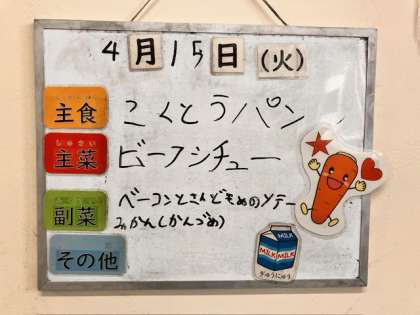 4月15日(火)
主食 こくとうパン
しゅさい
主菜 ビーフシチュー
副菜 ベーコンとさんどまめのソテー
みかん(かんづめ)
その他
MILK MILK
ぎゅうにゅう